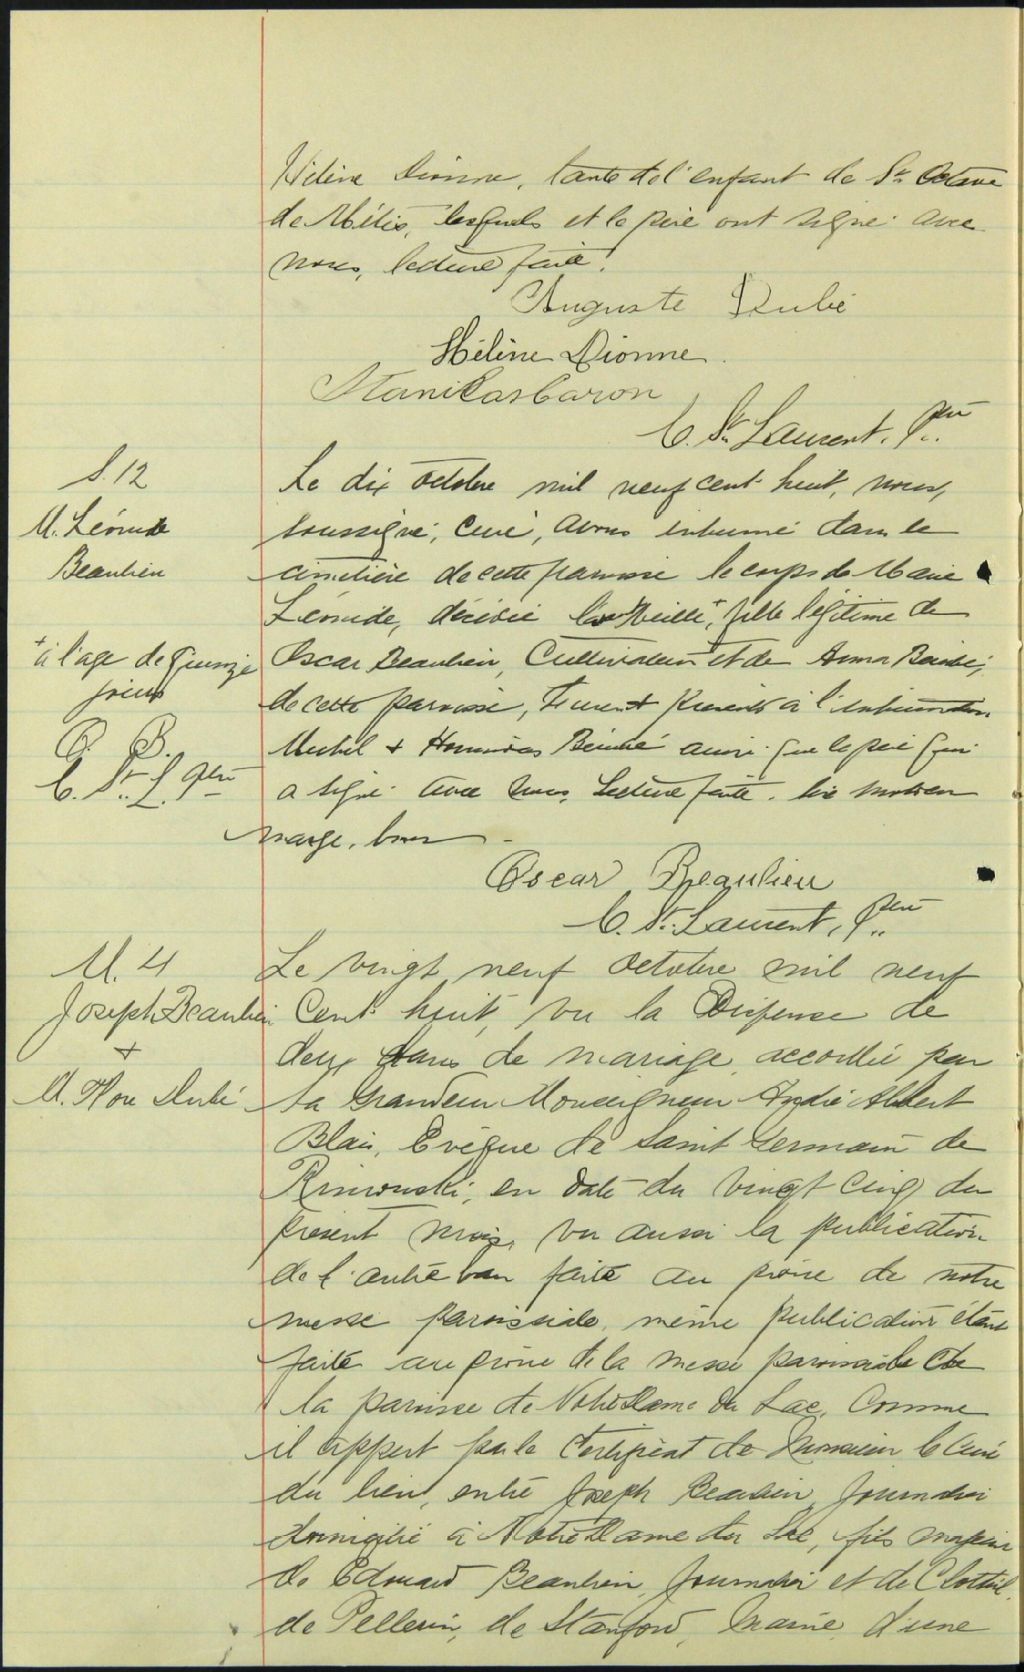 Hélène Dionne, tante de l'enfant de St. Octave
de Métis, lesquels et le père ont signé avec
nous, lecture faite.
Auguste Dubé
Hélène Dionne
Stanislas Caron
C. St. Laurent, Ptre
S. 12
M. Léonide
Beaulieu
+ à l'age de quinze
jours
O. B.
C. St. L. Ptre
Le dix octobre mil neuf cent huit, nous,
soussigné, curé, avons inhumé dans le
cimetière de cette paroisse le corps de Marie
Léonide, décédée la veille, + fille légitime de
Oscar Beaulieu, Cultivateur et de Anna
de cette paroisse, Furent présents à l'inhumation
Michel & ainsi que le père qui
a signé avec nous, Lecture faite.
marge, bon
Oscar Beaulieu
C. St. Laurent, Ptre
M. 4
Joseph Beaulieu
+
M. Dubé
Le vingt neuf octobre mil neuf
Cent huit, vu la Dispense de
deux bans de mariage accordée par
sa Grandeur Monseigneur André Albert
Blais, Evêque de Saint Germain de
Rimouski, en date du vingt cinq du
présent mois, vu aussi la publication
de l'autre ban faite au prône de notre
messe paroissiale, même publication étant
faite au prône de la messe paroissiale de
la paroisse de Notre Dame du Lac, Comme
il appert par le Certificat de Monsieur le Curé
du lieu, entre Joseph Beaulieu, Journalier
domicilié à Notre Dame du Lac, fils majeur
de Edouard Beaulieu, Journalier et de Clothil
de Pellerin, de Stanford, Maine, d'une